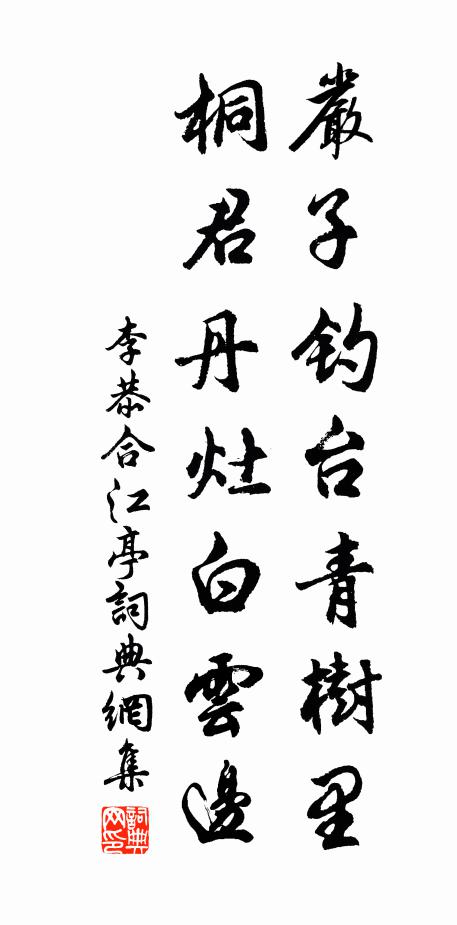 嚴子釣台青樹里
桐君丹灶白雲邊
李恭合江亭詞典網集
詞典网印